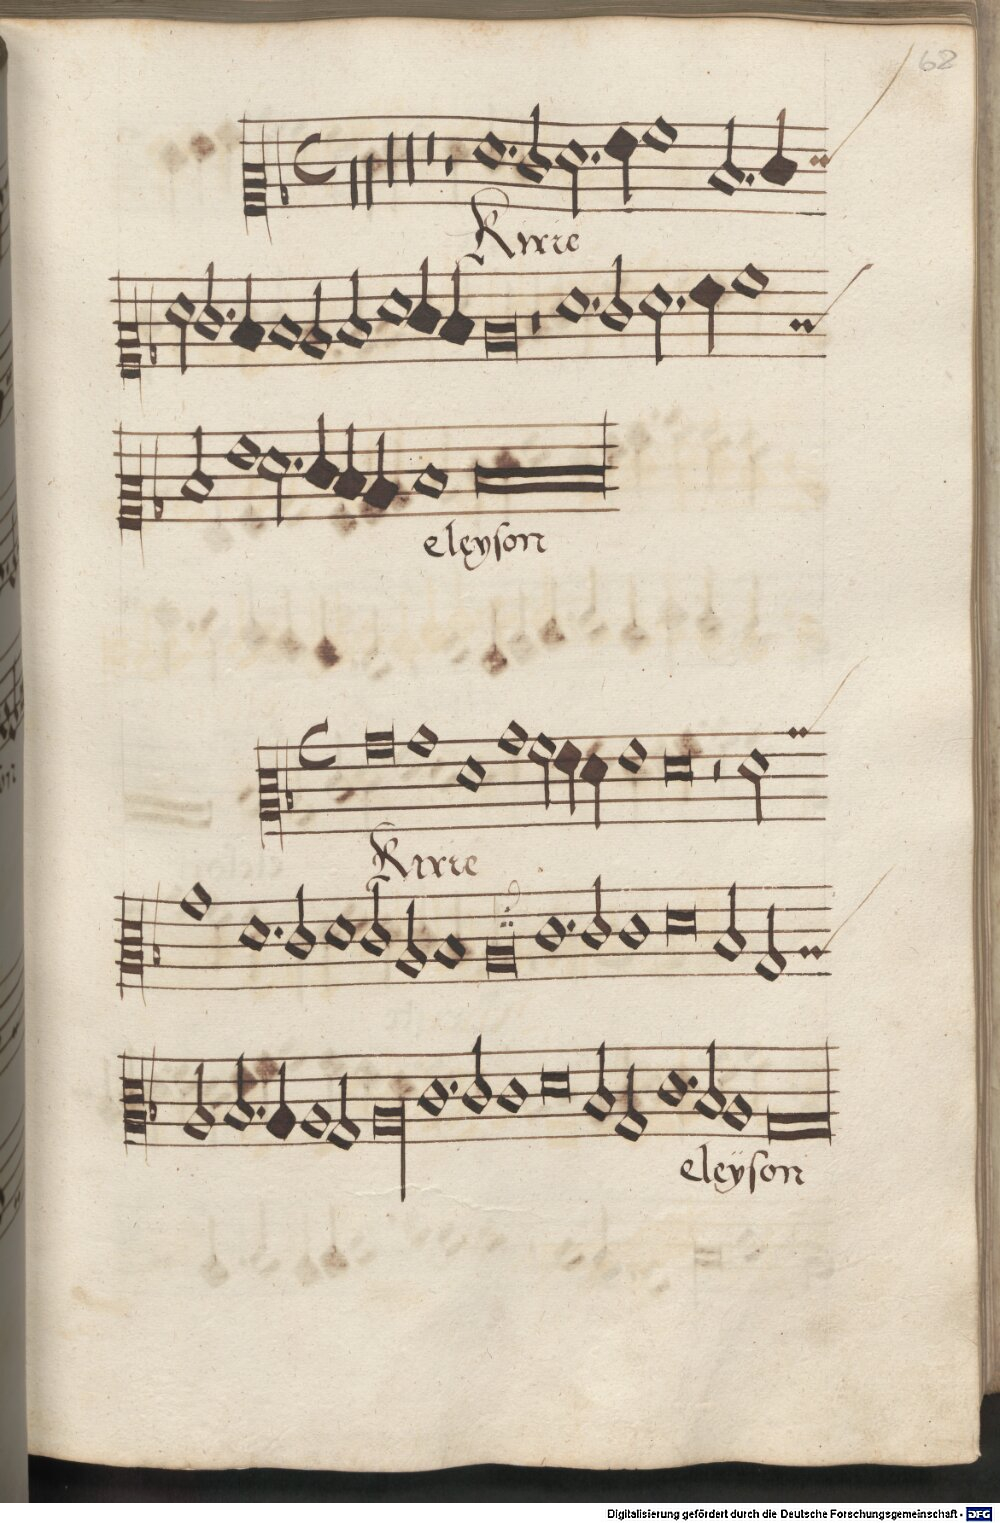 62
Kirie
eleyson
Kirie
eleÿson
Digitalisierung gefördert durch die Deutsche Forschungsgemeinschaft - DFG